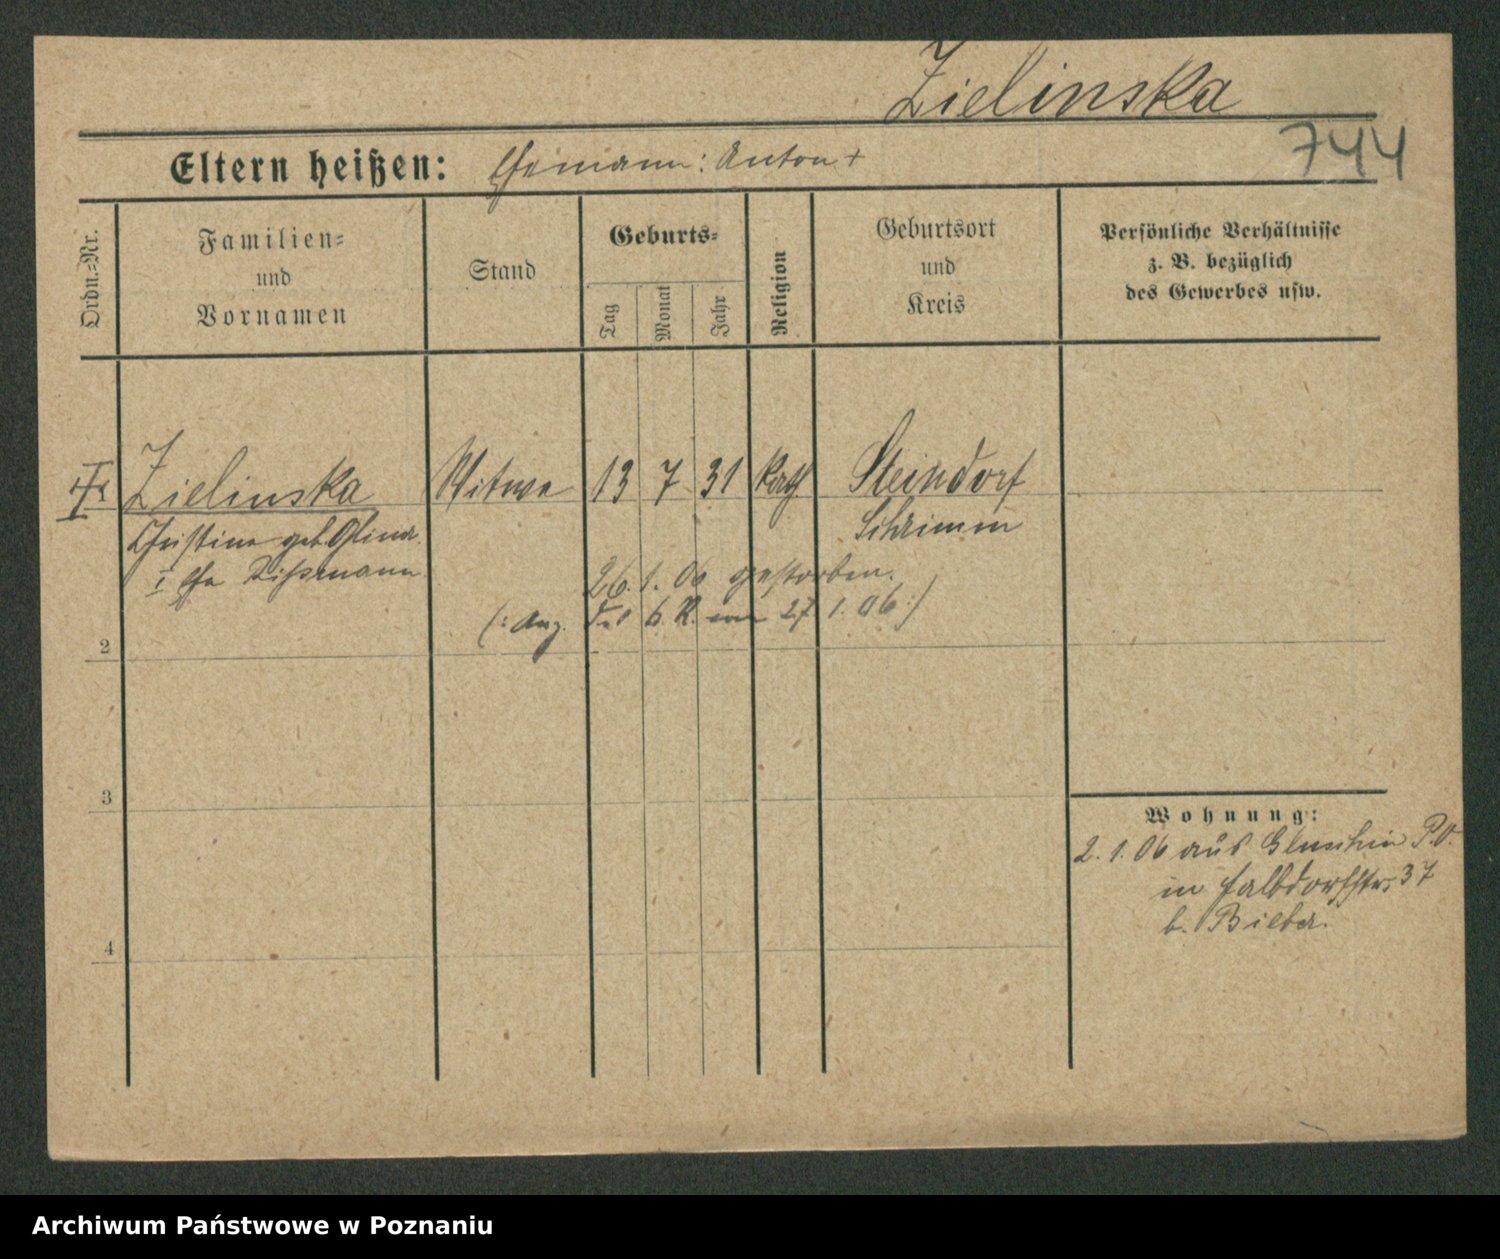 Zielinska
744
Eltern heißen: Ehemann: Anton +
Ordn.=Nr.
Familien=
und
Vornamen
Stand
Geburts=
Tag
Monat
Jahr
Religion
Geburtsort
und
Kreis
Persönliche Verhältnisse
z. B. bezüglich
des Gewerbes usw.
Zielinska Witwe 13 7 31 kath Steindorf
Christine geb. Schrimm
I Ehe
26. 1. 06 gestorben.
(: Anz. des 6. R. vom 27 1. 06 :)
2
3
4
Wohnung:
2. 1. 06 aus P.O.
in Halbdorfstr. 37
b. Bieber.
Archiwum Państwowe w Poznaniu